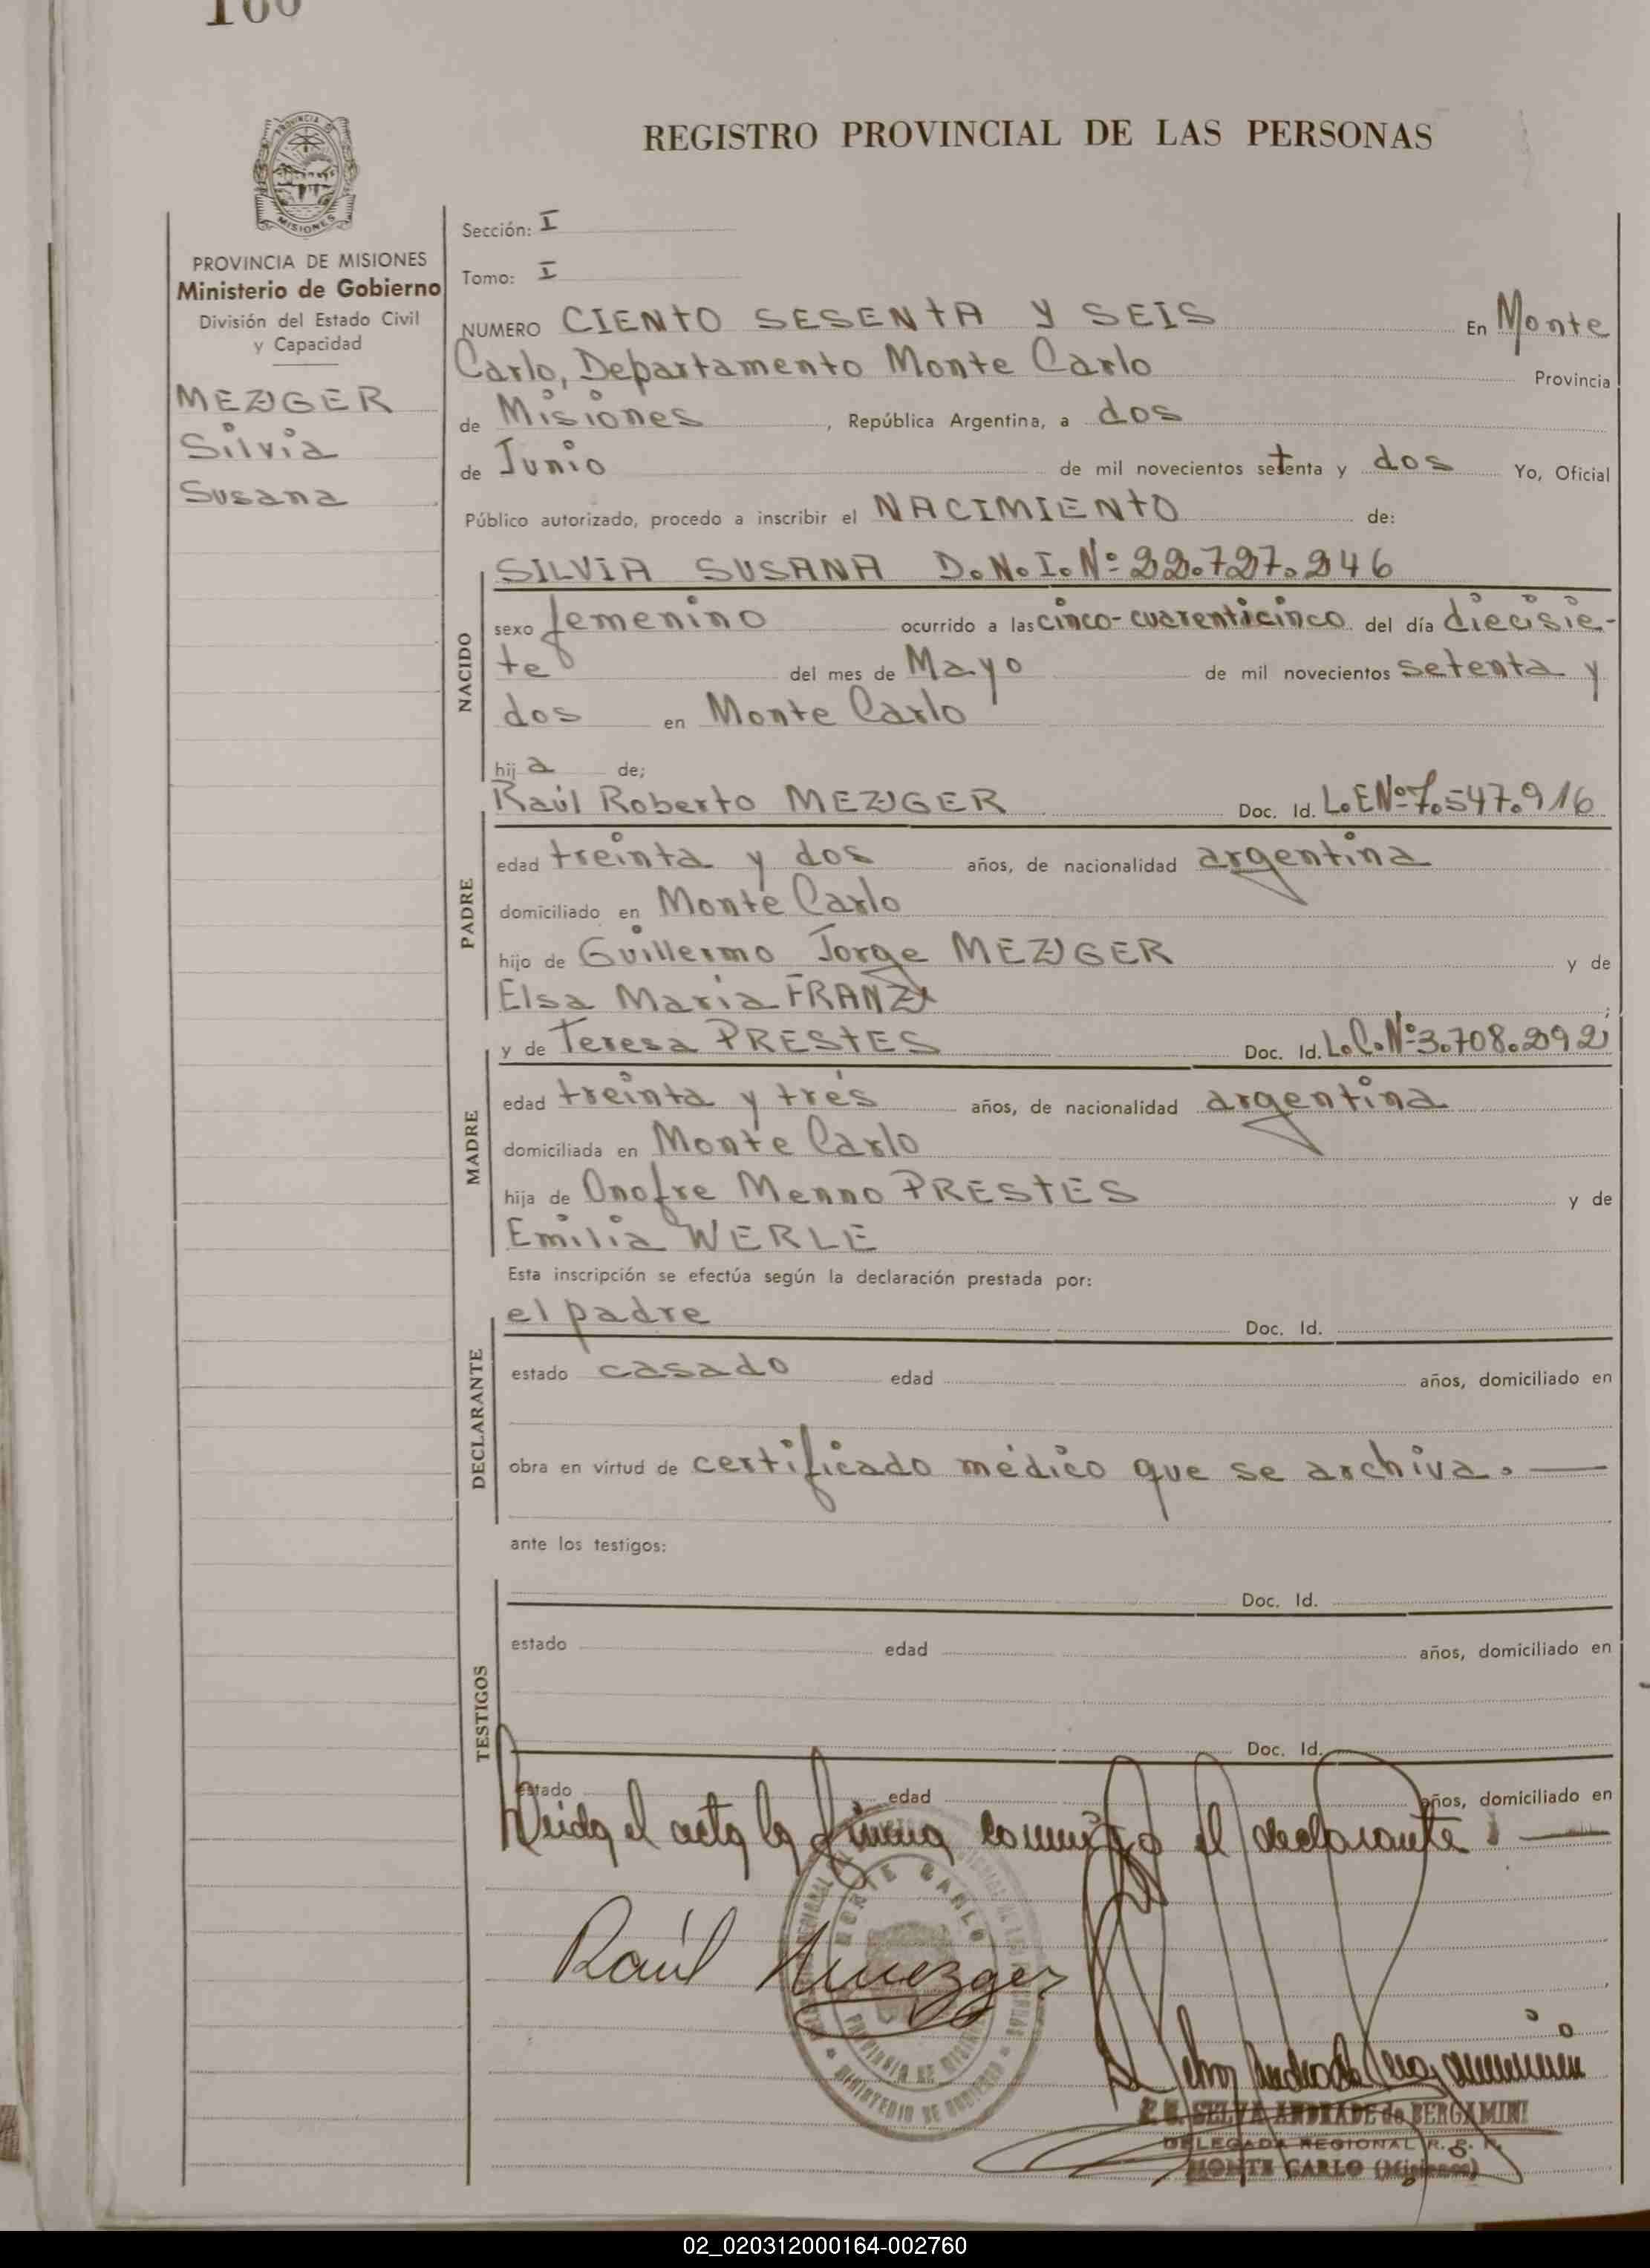 REGISTRO PROVINCIAL DE LAS PERSONAS
PROVINCIA DE MISIONES
Ministerio de Gobierno
División del Estado Civil
y Capacidad
MEZGER
Silvia
Susana
Sección: I
Tomo: I
NUMERO CIENTO SESENTA Y SEIS En Monte
Carlo, Departamento Monte Carlo Provincia
de Misiones, República Argentina, a dos
de Junio de mil novecientos setenta y dos Yo, Oficial
Público autorizado, procedo a inscribir el NACIMIENTO de:
NACIDO
SILVIA SUSANA D.N.I.Nº 22.727.246
sexo femenino ocurrido a las cinco-cuarenticinco del día diecisie-
te del mes de Mayo de mil novecientos setenta y
dos en Monte Carlo
hija de;
PADRE
Raúl Roberto MEZGER Doc. Id. L.E.Nº 7.547.916
edad treinta y dos años, de nacionalidad argentina
domiciliado en Monte Carlo
hijo de Guillermo Jorge MEZGER y de
Elsa María FRANZ;
MADRE
y de Teresa PRESTES Doc. Id. L.C.Nº 3.708.292
edad treinta y trés años, de nacionalidad argentina
domiciliada en Monte Carlo
hija de Onofre Menno PRESTES y de
Emilia WERLE
Esta inscripción se efectúa según la declaración prestada por:
DECLARANTE
el padre Doc. Id.
estado casado edad años, domiciliado en
obra en virtud de certificado médico que se archiva.
ante los testigos:
TESTIGOS
Doc. Id.
estado edad años, domiciliado en
Doc. Id.
estado edad años, domiciliado en
leida el acta la firma conmigo el declarante
Raúl Mezger
MONTE CARLO
PROVINCIA DE MISIONES
MINISTERIO DE GOBIERNO
SELVA ANDRADE de BERGAMINI
DELEGADA REGIONAL R. P.
MONTE CARLO (Misiones)
02_020312000164-002760